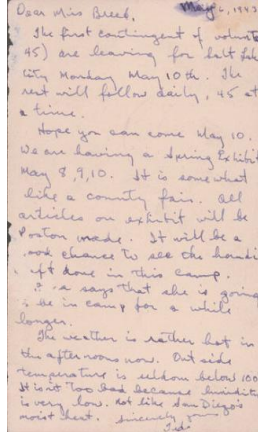 May 6, 1943
Dear Miss Breed,
The first contingent of volunteers
45) are leaving for Salt Lake
City Monday May 10th. The
rest will follow daily, 45 at
a time.
Hope you can come May 10.
We are having a Spring Exhibit
May 8, 9, 10. It is somewhat
like a county fair. All
articles on exhibit will be
Poston made. It will be a
good chance to see the handi
craft done in this camp.
says that she is going
to be in camp for a while
longer.
The weather is rather hot in
the afternoons now. Outside
temperature is seldom below 100
It isn't too bad because humidity
is very low. not like San Diego's
moist heat. Sincerely yours